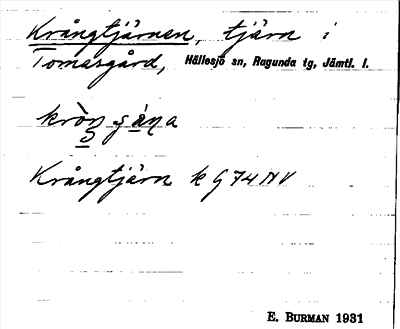 Krångtjärnen, tjärn i
Tomasgård, Hällesjö sn, Ragunda tg, Jämtl. l.
Krångtjärn k G74NV
E. BURMAN 1931